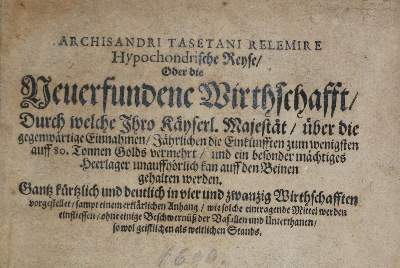 ARCHISANDRI TASETANI RELEMIRE
Hypochondrische Reyse/
Oder die
Neuerfundene Wirthschafft/
Durch welche Ihro Käyserl. Majestät / über die
gegenwärtige Einnahmen/ Jährlichen die Einkünfften zum wenigsten
auff 80. Tonnen Golds vermehrt / und ein besonder mächtiges
Heerlager unauffhörlich kan auff den Beinen
gehalten werden.
Gantz kürtzlich und deutlich in vier und zwanzig Wirthschafften
vorgestellet / sampt einem erklärlichen Anhang / wie solche eintragende Mittel werden
einfliessen / ohne einige Beschwernüß der Vasallen und Unterthanen/
so wol geistlichen als weltlichen Stands.